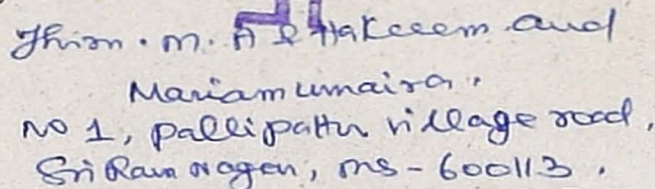 Thiru. M. A Hakeem and
Mariam umaira,
No 1, pallipattu village road,
Sri Ram Nagar, ms - 600113.